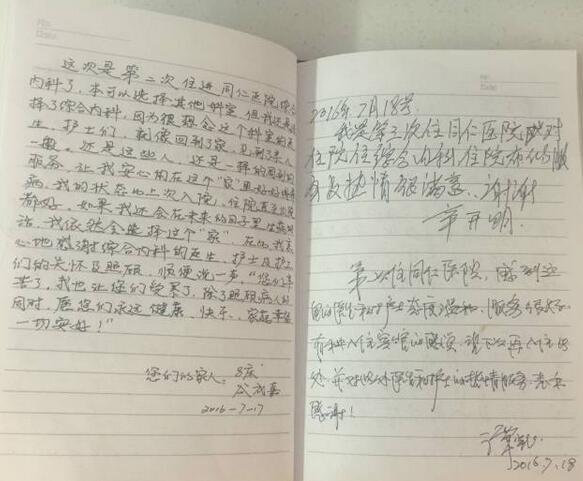 No:
Date:
这次是第二次住进同仁医院综合
内科了，本可以选择其他科室，但我还是选
择了综合内科，因为很想念这个科室的医
生、护士们，就像回到了家，见到了亲人
一样。还是这些人，还是一样的周到的
服务，让我安心的在这个“家”里好好
病，我的状态比上次入院，住院直至
都好，如果我还会在未来的日子里生病
话，我依然会选择这个“家”，在此，我衷
心地感谢综合内科的医生、护士及护工
们的关怀及照顾，顺便说一声，“您们辛
苦了，我也让您们受累了，除了照顾病人的
同时，愿您们永远健康、快乐、家庭幸福
一切安好！”
您们的家人：8床
2016-7-17
No:
Date:
2016年7月18号
我是第三次住同仁医院
住院住综合内科住院
热情很满意、谢谢
章开明.
第二次住同仁医院，感到这
里的医生和护士态度温和，服务很好
有种入住宾馆的感觉，
处，并对 医生和护士的热情服务，表示
感谢！
2016.7.18